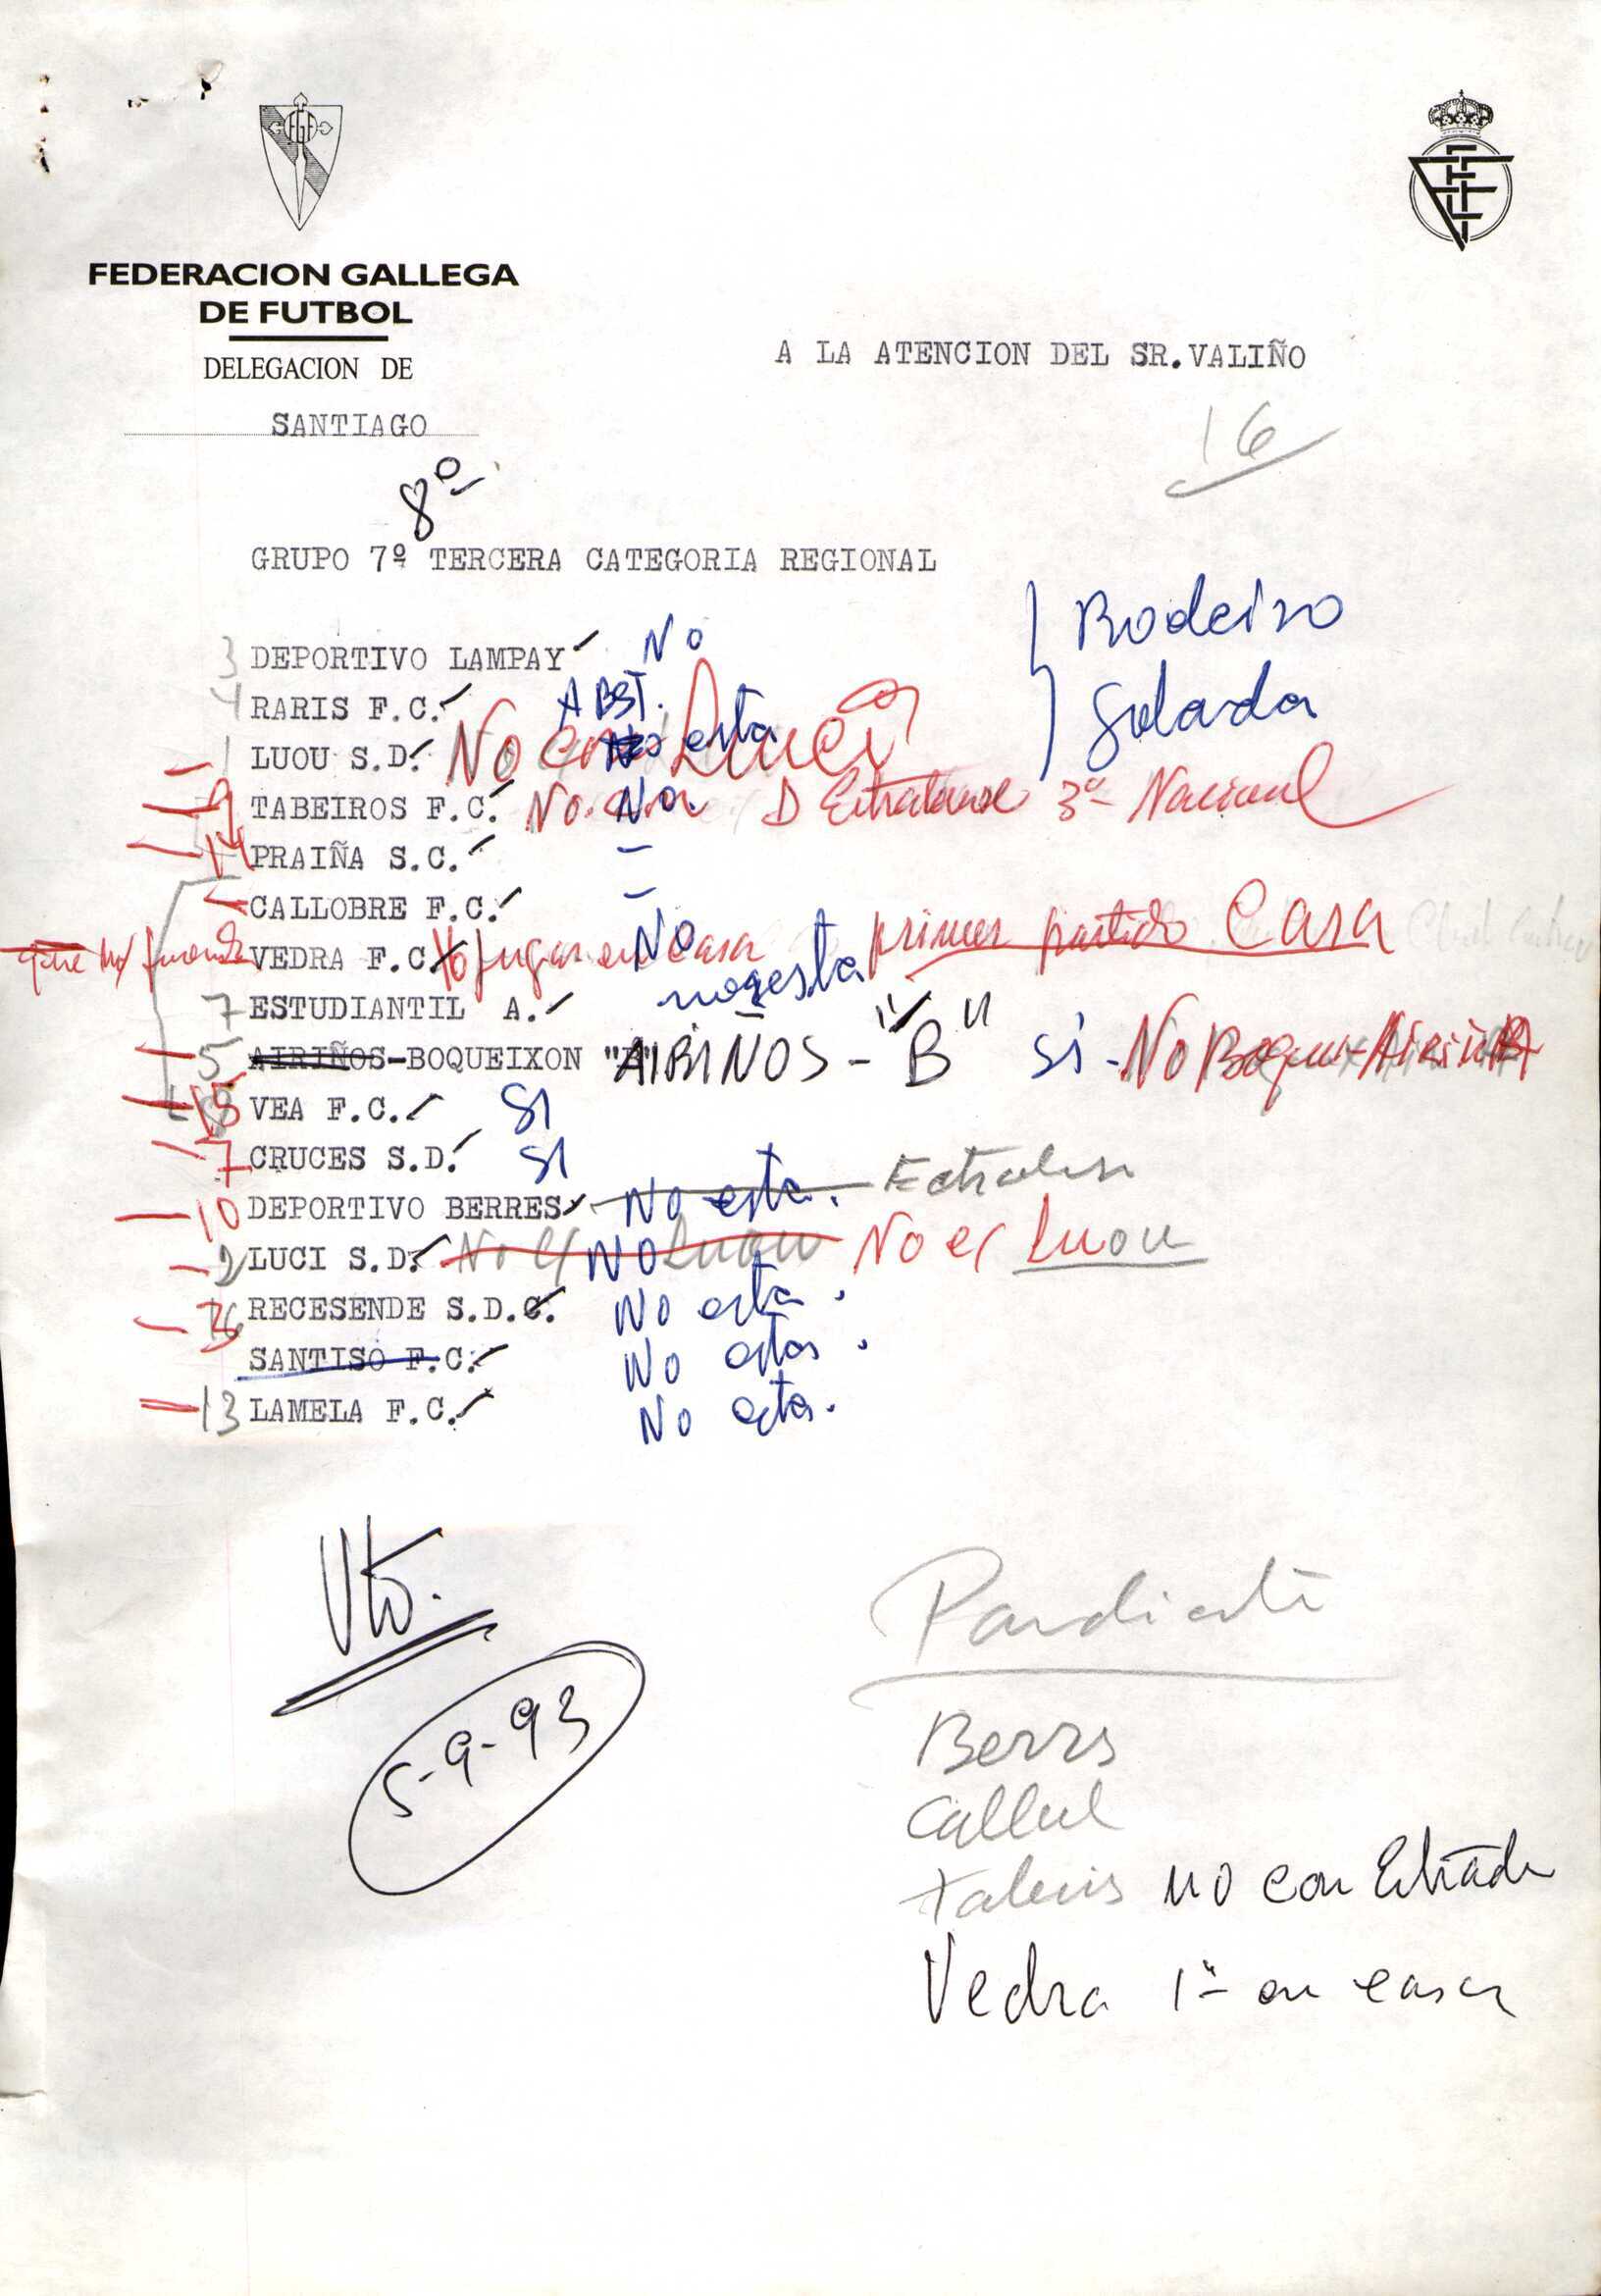 FEDERACION GALLEGA
DE FUTBOL
DELEGACION DE
SANTIAGO
A LA ATENCION DEL SR.VALIÑO
16
8º
GRUPO 7º TERCERA CATEGORIA REGIONAL
Rodeiro
Golada
3 DEPORTIVO LAMPAY No
4 RARIS F.C. ABST.
1 LUOU S.D. No con Luci No esta
9 TABEIROS F.C. No con No. D Estradense 3ª Nacional
14 PRAIÑA S.C. -
CALLOBRE F.C. -
VEDRA F.C. jugar en casa No primer partido Casa
7 ESTUDIANTIL A. no esta
5 AIRIÑOS-BOQUEIXON "B" AIRIÑOS-"B" SI - No
15 VEA F.C. SI
7 CRUCES S.D. SI
10 DEPORTIVO BERRES No esta.
2 LUCI S.D. No Luou No No es Luou
RECESENDE S.D.C. No esta.
SANTISO F.C. No esta.
13 LAMELA F.C. No esta.
Vto.
5-9-93
Pendiente
Berrs
no con Estrade
Vedra 1º en casa